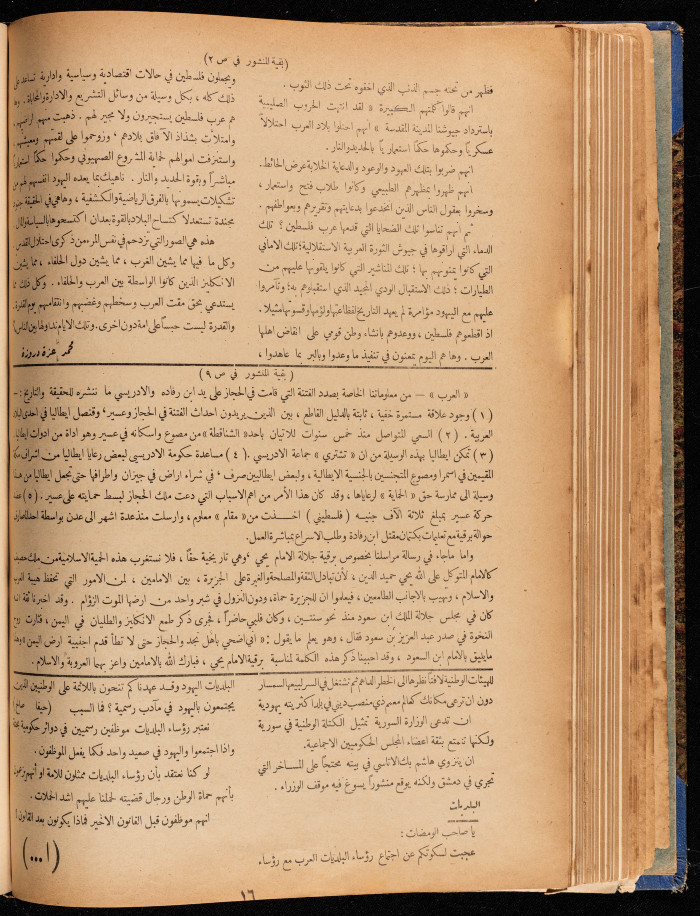 (بقية المنشور في ص ٢)
فظهر من تحته جسم الذئب الذي اخفوه تحت ذلك الثوب .
انهم قالوا كلمتهم الكبيرة « لقد انتهت الحروب الصليبية
باسترداد جيوشنا المدينة المقدسة » انهم احتلوا بلاد العرب احتلالاً
عسكرياً وحكموها حكماً استعمارياً بالحديد والنار .
انهم ضربوا بتلك العهود والوعود والدعاية الخلابة عرض الحائط .
انهم ظهروا بمظهرهم الطبيعي وكانوا طلاب فتح واستعمار ،
وسخروا بعقول الناس الذين انخدعوا بدعايتهم وتغريرهم وبعواطفهم .
ثم انهم تناسوا تلك الضحايا التي قدمها عرب فلسطين ؛ تلك
الدماء التي اراقوها في جيوش الثورة العربية الاستقلالية ؛ تلك الاماني
التي كانوا يمنونهم بها ؛ تلك المناشير التي كانوا يلقونها عليهم من
الطيارات ؛ ذلك الاستقبال الودي المجيد الذي استقبلوهم به ؛ وتآمروا
عليهم مع اليهود مؤامرة لم يعهد التاريخ لفظاعتها ولؤمها وقسوتها مثيلا .
اذ اقطعوهم فلسطين ، ووعدوهم بانشاء وطن قومي على انقاض اهلها
العرب . وها هم اليوم يمعنون في تنفيذ ما وعدوا وبالبر بما عاهدوا ،
ويجعلون فلسطين في حالات اقتصادية وسياسية وادارية تساعد على
ذلك كله ، بكل وسيلة من وسائل التشريع والادارة والمحاباة . وها
هم عرب فلسطين يستجيرون ولا مجير لهم . ذهبت منهم اراضيهم ،
وامتلأت بشذاذ الآفاق بلادهم ، وزوحموا على لقمتهم ومعيشتهم
واستنزفت اموالهم لحماية المشروع الصهيوني وحكموا حكماً استعمارياً
مباشراً وبقوة الحديد والنار . ناهيك بما يعده اليهود انفسهم لهم من
تشكيلات يسمونها بالفرق الرياضية والكشفية ، وماهي في الحقيقة جنود
مجندة تستعد لاكتساح البلاد بالقوة بعد ان اكتسحوها بالسياسة والمال
هذه هي الصور التي تزدحم في نفس المرء من ذكرى احتلال القدس
وكل ما فيها مما يشين الغرب ، مما يشين دول الحلفاء ، مما يشين
الانكليز الذين كانوا الواسطة بين العرب والحلفاء . وكل ذلك مما
يستدعي بحق مقت العرب وسخطهم وغضبهم وانتقامهم يوم القدرة
والقدرة ليست حبساً على امة دون اخرى . وتلك الايام نداولها بين الناس
محمد عزة دروزة
(بقية المنشور في ص ٩)
« العرب » — من معلوماتنا الخاصة بصدد الفتنة التي قامت في الحجاز على يد ابن رفاده والادريسي ما ننشره للحقيقة والتاريخ : —
(١) وجود علاقة مستمرة خفية ، ثابتة بالدليل القاطع ، بين الذين يريدون احداث الفتنة في الحجاز وعسير ، وقنصل ايطاليا في احدى البلاد
العربية . (٢) السعي المتواصل منذ خمس سنوات للاتيان باحد « الشناقطة » من مصوع واسكانه في عسير وهو اداة من ادوات ايطاليا
(٣) تمكن ايطاليا بهذه الوسيلة من ان « تشتري » جماعة الادريسي . (٤) مساعدة حكومة الادريسي لبعض رعايا ايطاليا من اشراف مكة
المقيمين في اسمرا ومصوع المتجنسين بالجنسية الايطالية ، ولبعض ايطاليين صرف ، في شراء اراض في جيزان واطرافها حتى تجعل ايطاليا من هذا
وسيلة الى ممارسة حق « الحماية » لرعاياها ، وقد كان هذا الأمر من اهم الاسباب التي دعت ملك الحجاز لبسط حمايته على عسير . (٥)
حركة عسير بمبلغ ثلاثة الآف جنيه (فلسطيني) اخذت من « مقام » معلوم ، وارسلت منذ عدة اشهر الى عدن بواسطة احد
حوالة برقية مع تعليمات بكتمان مقتل ابن رفادة وطلب الاسراع بمباشرة العمل .
واما ماجاء في رسالة مراسلنا بخصوص برقية جلالة الامام يحيى ، وهي تاريخية حقاً ، فلا نستغرب هذه الحمية الاسلامية من ملك
كالامام المتوكل على الله يحيى حميد الدين ، لأن تبادل الثقة والمصلحة والغيرة على الجزيرة ، بين الامامين ، لمن الامور التي تحفظ هيبة العرب
والاسلام ، وتهيب بالاجانب الطامعين ، فيعلموا ان للجزيرة حماة ، ودون النزول في شبر واحد من ارضها الموت الزؤام . وقد اخبرنا ثقة انه
كان في مجلس جلالة الملك ابن سعود منذ نحو سنتين ، وكان فلبي حاضراً ، فجرى ذكر طمع الانكليز والطليان في اليمن ، فثارت
النخوة في صدر عبد العزيز بن سعود فقال ، وهو يعلم ما يقول : « اني اضحي باهل نجد والحجاز حتى لا تطأ قدم اجنبية ارض اليمن »
مايليق بالامام ابن السعود . وقد احببنا ذكر هذه الكلمة لمناسبة برقية الامام يحيى ، فبارك الله بالامامين واعز بهما العروبة والاسلام .
للهيئات الوطنية لافتاً نظرها الى الخطر الداهم ثم تشتغل في السر لبيعها السمسار
دون ان ترعى مكانك كعالم معمم ذي منصب ديني في بلد اكثريته يهودية
ان تدعى الوزارة السورية تمثيل الكتلة الوطنية في سورية
ولكنها تتمتع بثقة اعضاء المجلس الحكوميين الاجماعية .
ان ينزوي هاشم بك الاتاسي في بيته محتجاً على المساخر التي
تجري في دمشق ولكنه يوقع منشوراً يسوغ فيه موقف الوزراء .
البلديات
يا صاحب الومضات :
عجبت لسكوتكم عن اجتماع رؤساء البلديات العرب مع رؤساء
البلديات اليهود وقد عهدناكم تنحون باللائمة على الوطنيين الذين
يجتمعون باليهود في مآدب رسمية ؟ فما السبب (حيفا
نعتبر رؤساء البلديات موظفين رسميين في دوائر حكومية
واذا اجتمعوا واليهود في صعيد واحد فكما يفعل الموظفون .
لو كنا نعتقد بأن رؤساء البلديات ممثلون للامة او أنهم يزعمون
بأنهم حماة الوطن ورجال قضيته لحملنا عليهم اشد الحملات .
انهم موظفون قبل القانون الاخير فماذا يكونون بعد القانون !
(١...)
١٦